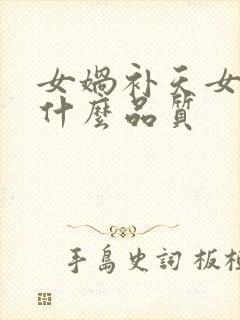 女媧补天女
什麼品質
手島史詞 板桓